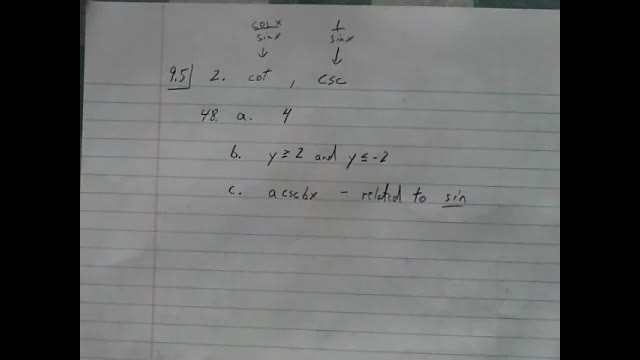 cos x / sin x   1 / sin x
↓ ↓
9.5 2. cot , csc
48. a. 4
b. y ≥ 2 and y ≤ -2
c. a csc bx - related to sin